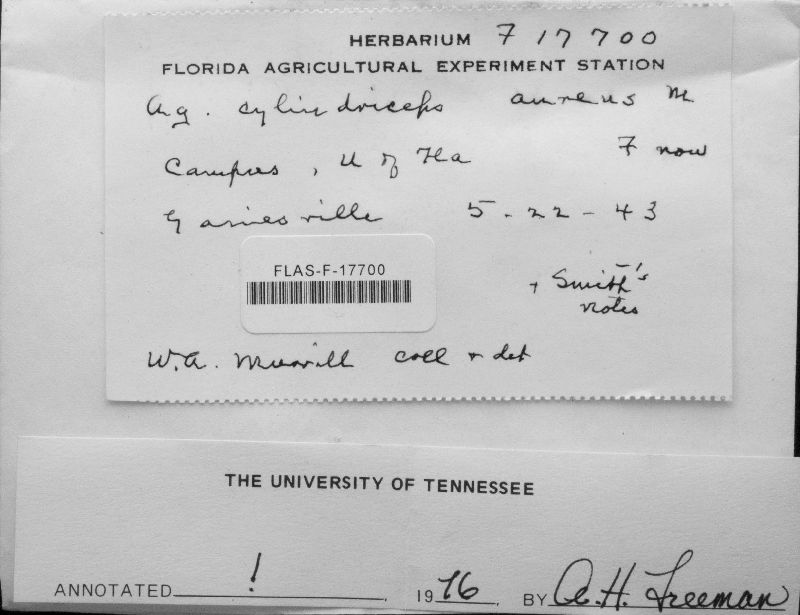 HERBARIUM F 17700
FLORIDA AGRICULTURAL EXPERIMENT STATION
Ag. cylindriceps aureus M
Campus, U of Fla F now
Gainesville 5-22-43
FLAS-F-17700
+ Smith's
notes
W.A. Murrill coll & det
THE UNIVERSITY OF TENNESSEE
ANNOTATED ! , 1976, BY A.H. Freeman